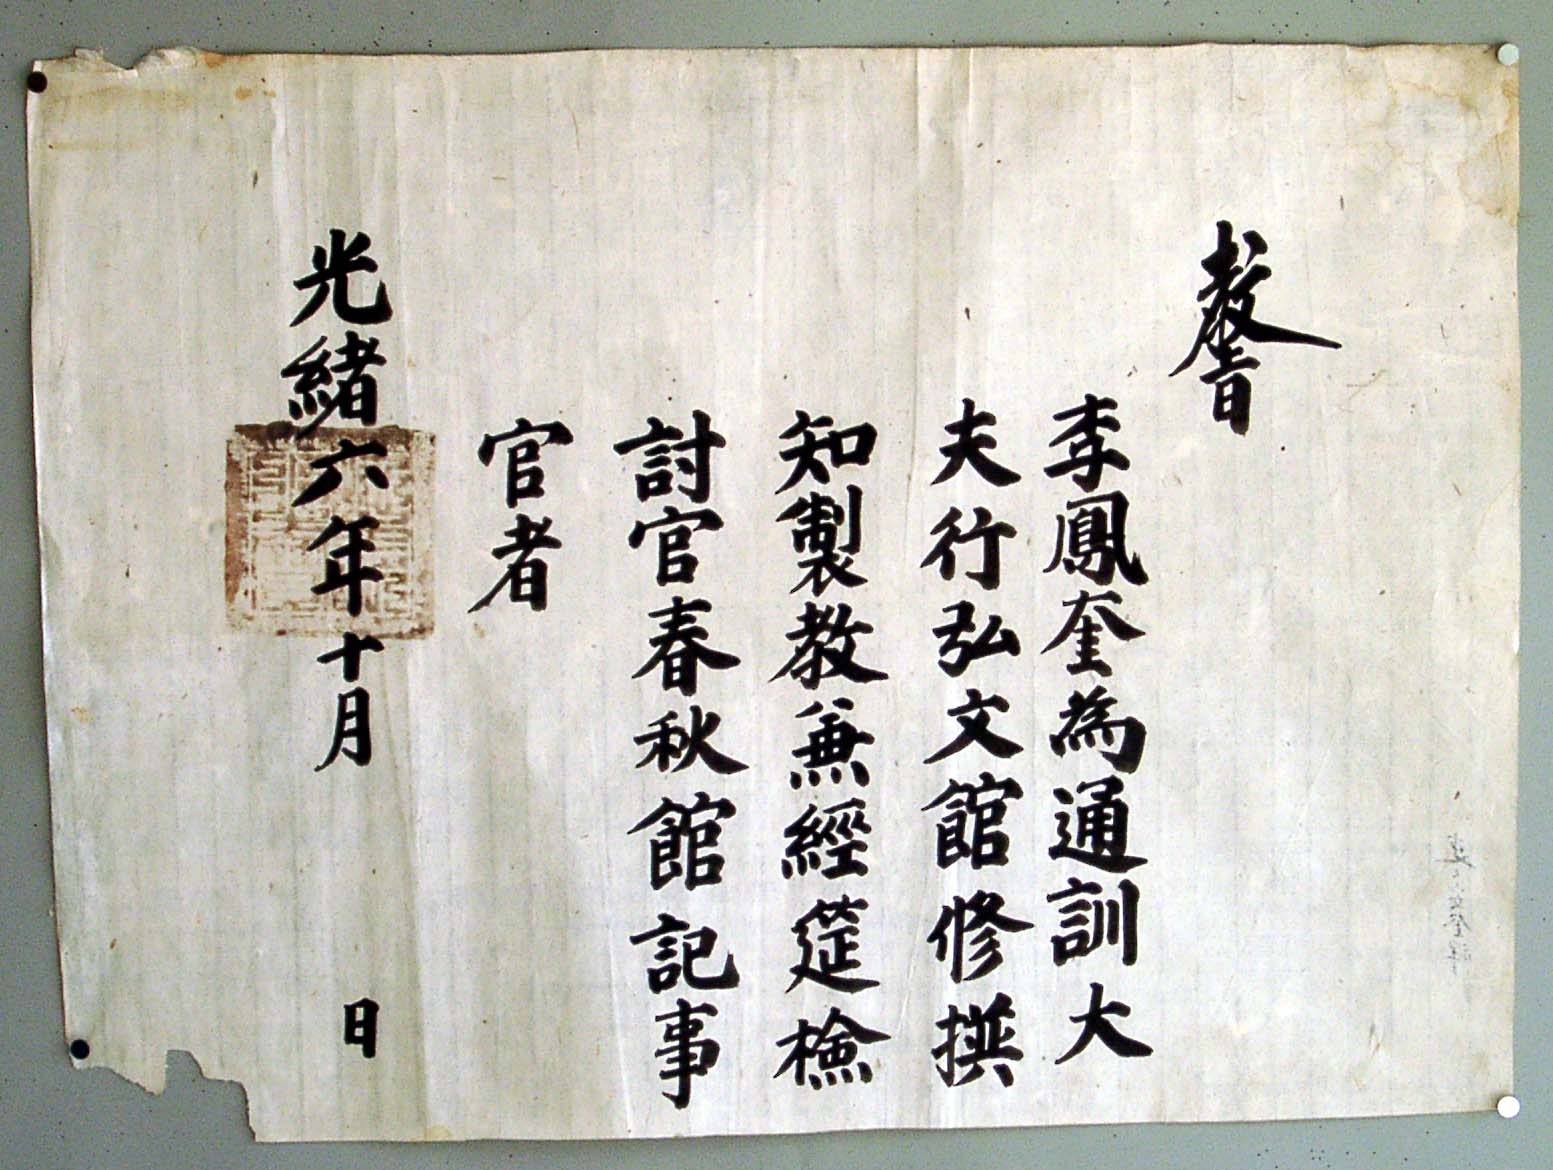 敎旨
李鳳奎為通訓大
夫行弘文館修撰
知製敎兼經筵檢
討官春秋館記事
官者
光緒六年十月 日